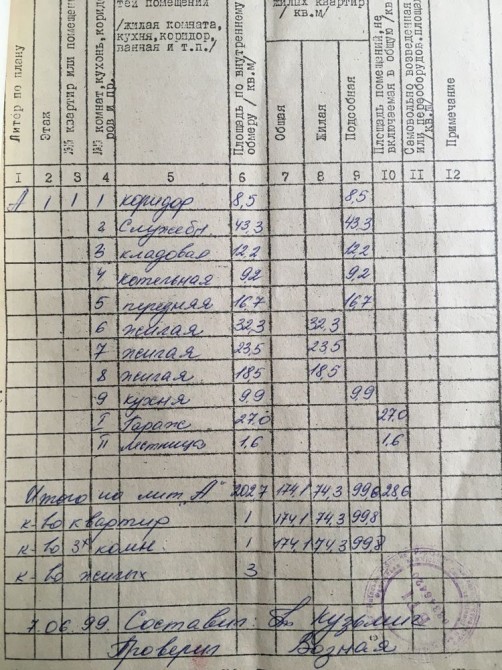 тей помещений
/жилая комната,
кухня, коридор,
ванная и т.п./
Литер по плану
Этаж
№№ квартир или помещен
№№ комнат, кухонь, коридо
ров и др.
Площадь по внутреннему
обмеру / кв.м/
жилых квартир
/ кв.м/
Общая
Жилая
Подсобная
Площадь помещений, не
включаемая в общую /кв
Самовольно возведенная
или переоборудов. площад
/кв.м/
Примечание
I 2 3 4 5 6 7 8 9 10 II 12
А 1 1 1 коридор 8,5 8,5
2 Служебн. 43,3 43,3
3 кладовая 12,2 12,2
4 котельная 9,2 9,2
5 передняя 16,7 16,7
6 жилая 32,3 32,3
7 жилая 23,5 23,5
8 жилая 18,5 18,5
9 кухня 9,9 9,9
I Гараж 27,0 27,0
II Лестница 1,6 1,6
Итого на лит. "А" 202,7 174,1 74,3 99,8 28,6
к-во квартир 1 174,1 74,3 99,8
к-во 3х комн. 1 174,1 74,3 99,8
к-во жилых 3
7.06.99. Составил: Кузьмин
Проверил Возная